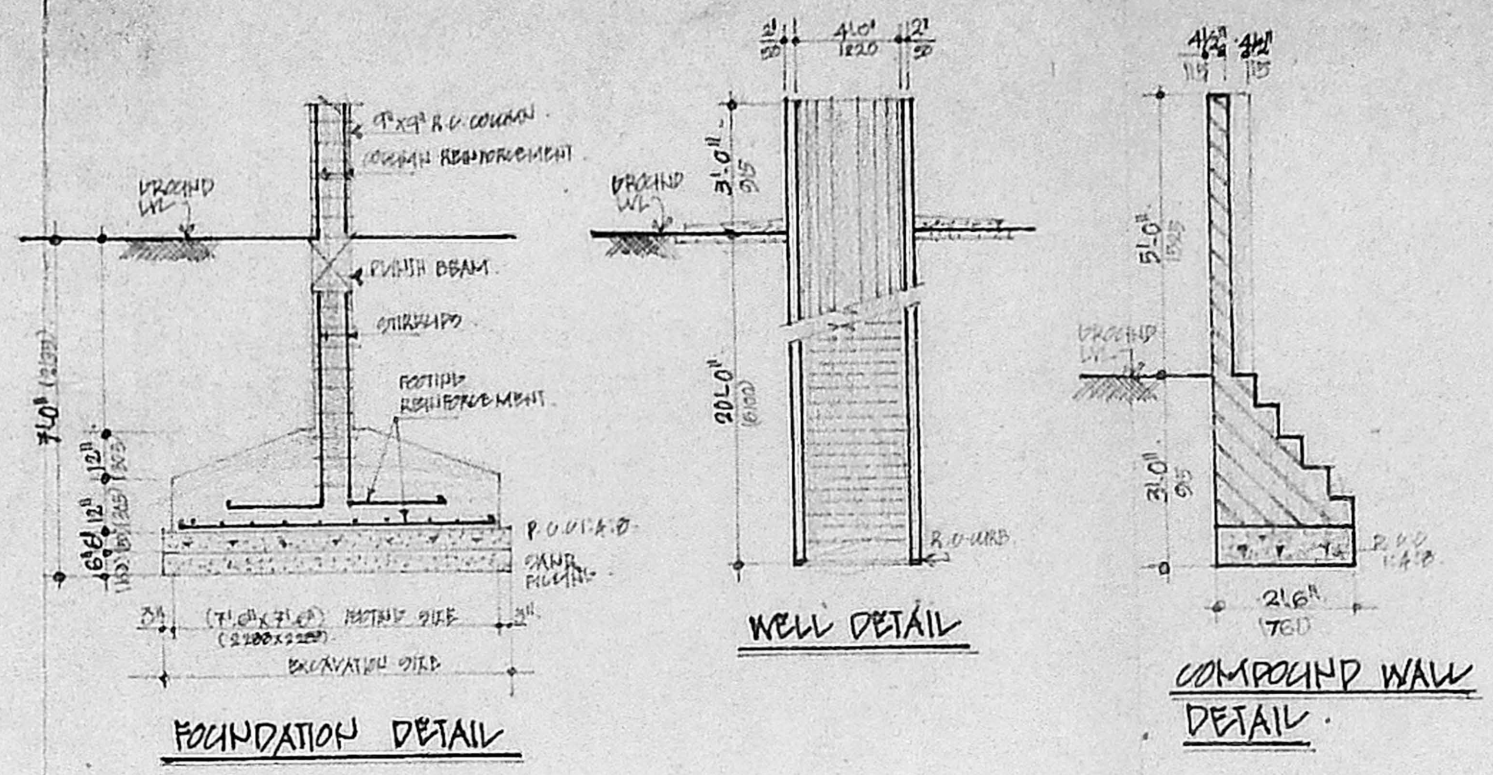 9"x9" R.C. COLUMN.
COLUMN REINFORCEMENT
GROUND
LVL
PLINTH BEAM.
STIRRUPS.
FOOTING
REINFORCEMENT.
7'-0" (2135)
12"
(305)
12"
(305)
6"
6"
P.C.C 1:4:8
SAND
FILLING.
3"
(7'-6" x 7'-6") FOOTING SIZE
3"
EXCAVATION SIZE
FOUNDATION DETAIL
2"
50
4'-0"
1220
2"
50
3'-0"
915
GROUND
LVL
20'-0"
(6100)
R.C CURB
WELL DETAIL
4½"
115
4½"
115
5'-0"
1525
GROUND
LVL
3'-0"
915
P.C.C
1:4:8.
2'-6"
(761)
COMPOUND WALL
DETAIL.